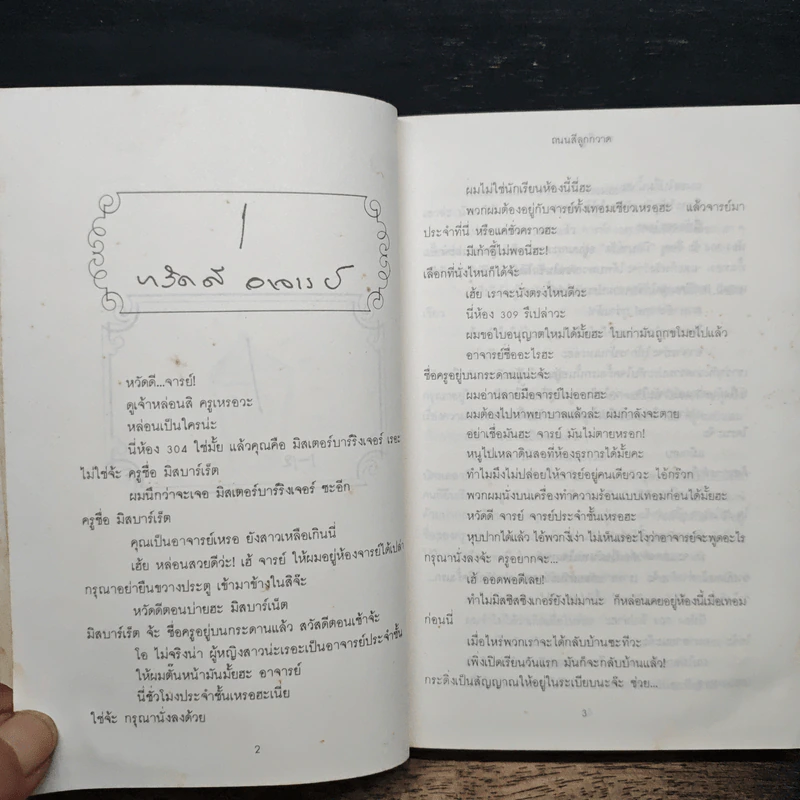 1
หวัดดี อาจารย์
หวัดดี...จารย์!
ดูเจ้าหล่อนสิ ครูเหรอวะ
หล่อนเป็นใครน่ะ
นี่ห้อง 304 ใช่มั้ย แล้วคุณคือ มิสเตอร์บาร์ริงเจอร์ เรอะ
ไม่ใช่จ้ะ ครูชื่อ มิสบาร์เร็ต
ผมนึกว่าจะเจอ มิสเตอร์บาร์ริงเจอร์ ซะอีก
ครูชื่อ มิสบาร์เร็ต
คุณเป็นอาจารย์เหรอ ยังสาวเหลือเกินนี่
เฮ้ย หล่อนสวยดีว่ะ! เฮ้ จารย์ ให้ผมอยู่ห้องจารย์ได้เปล่า
กรุณาอย่ายืนขวางประตู เข้ามาข้างในสิจ๊ะ
หวัดดีตอนบ่ายฮะ มิสบาร์เน็ต
มิสบาร์เร็ต จ้ะ ชื่อครูอยู่บนกระดานแล้ว สวัสดีตอนเช้าจ้ะ
โอ ไม่จริงน่า ผู้หญิงสาวน่ะเรอะเป็นอาจารย์ประจำชั้น
ให้ผมดั๊นหน้ามันมั้ยฮะ อาจารย์
นี่ชั่วโมงประจำชั้นเหรอฮะเนี่ย
ใช่จ้ะ กรุณานั่งลงด้วย
2
ถนนสีลูกกวาด
ผมไม่ใช่นักเรียนห้องนี้นี่ฮะ
พวกผมต้องอยู่กับจารย์ทั้งเทอมเชียวเหรอฮะ แล้วจารย์มา
ประจำที่นี่ หรือแค่ชั่วคราวฮะ
มีเก้าอี้ไม่พอนี่ฮะ!
เลือกที่นั่งไหนก็ได้จ้ะ
เฮ้ย เราจะนั่งตรงไหนดีวะ
นี่ห้อง 309 รึเปล่าวะ
ผมขอใบอนุญาตใหม่ได้มั้ยฮะ ใบเก่ามันถูกขโมยไปแล้ว
อาจารย์ชื่ออะไรฮะ
ชื่อครูอยู่บนกระดานแน่ะจ้ะ
ผมอ่านลายมือจารย์ไม่ออกฮะ
ผมต้องไปหาพยาบาลแล้วล่ะ ผมกำลังจะตาย
อย่าเชื่อมันฮะ จารย์ มันไม่ตายหรอก!
หนูไปเหลาดินสอที่ห้องธุรการได้มั้ยคะ
ทำไมมึงไม่ปล่อยให้จารย์อยู่คนเดียววะ ไอ้กร๊วก
พวกผมนั่งบนเครื่องทำความร้อนแบบเทอมก่อนได้มั้ยฮะ
หวัดดี จารย์ จารย์ประจำชั้นเหรอฮะ
หุบปากได้แล้ว ไอ้พวกงี่เง่า ไม่เห็นเรอะไงว่าอาจารย์จะพูดอะไร
กรุณานั่งลงจ้ะ ครูอยากจะ...
เฮ้ ออดพอดีเลย!
ทำไมมิสซิสซิงเกอร์ยังไม่มานะ ก็หล่อนเคยอยู่ห้องนี้เมื่อเทอม
ก่อนนี่
เมื่อไหร่พวกเราจะได้กลับบ้านซะทีวะ
เพิ่งเปิดเรียนวันแรก มันก็จะกลับบ้านแล้ว!
กระดิ่งเป็นสัญญาณให้อยู่ในระเบียบนะจ๊ะ ช่วย...
3